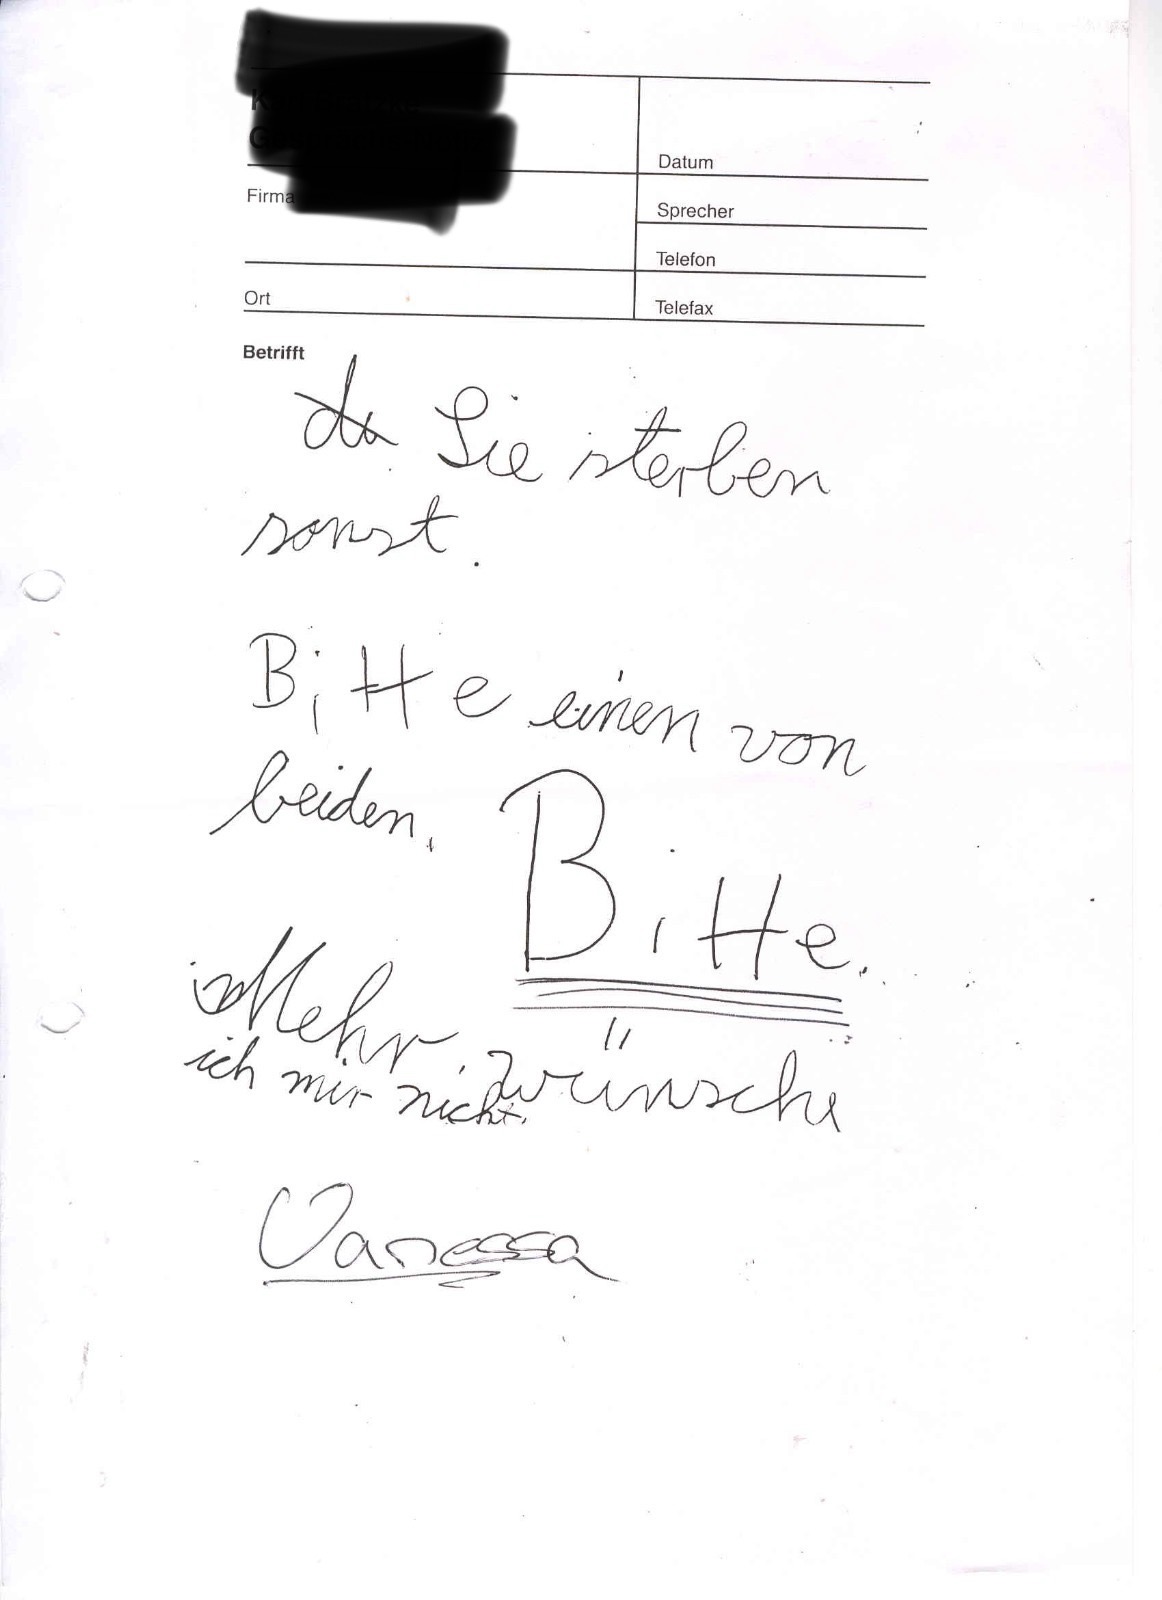 Datum
Firma
Sprecher
Telefon
Ort
Telefax
Betrifft
du Sie sterben
sonst.
Bitte einen von
beiden.
Bitte.
Mehr wünsche
ich mir nicht.
Vanessa